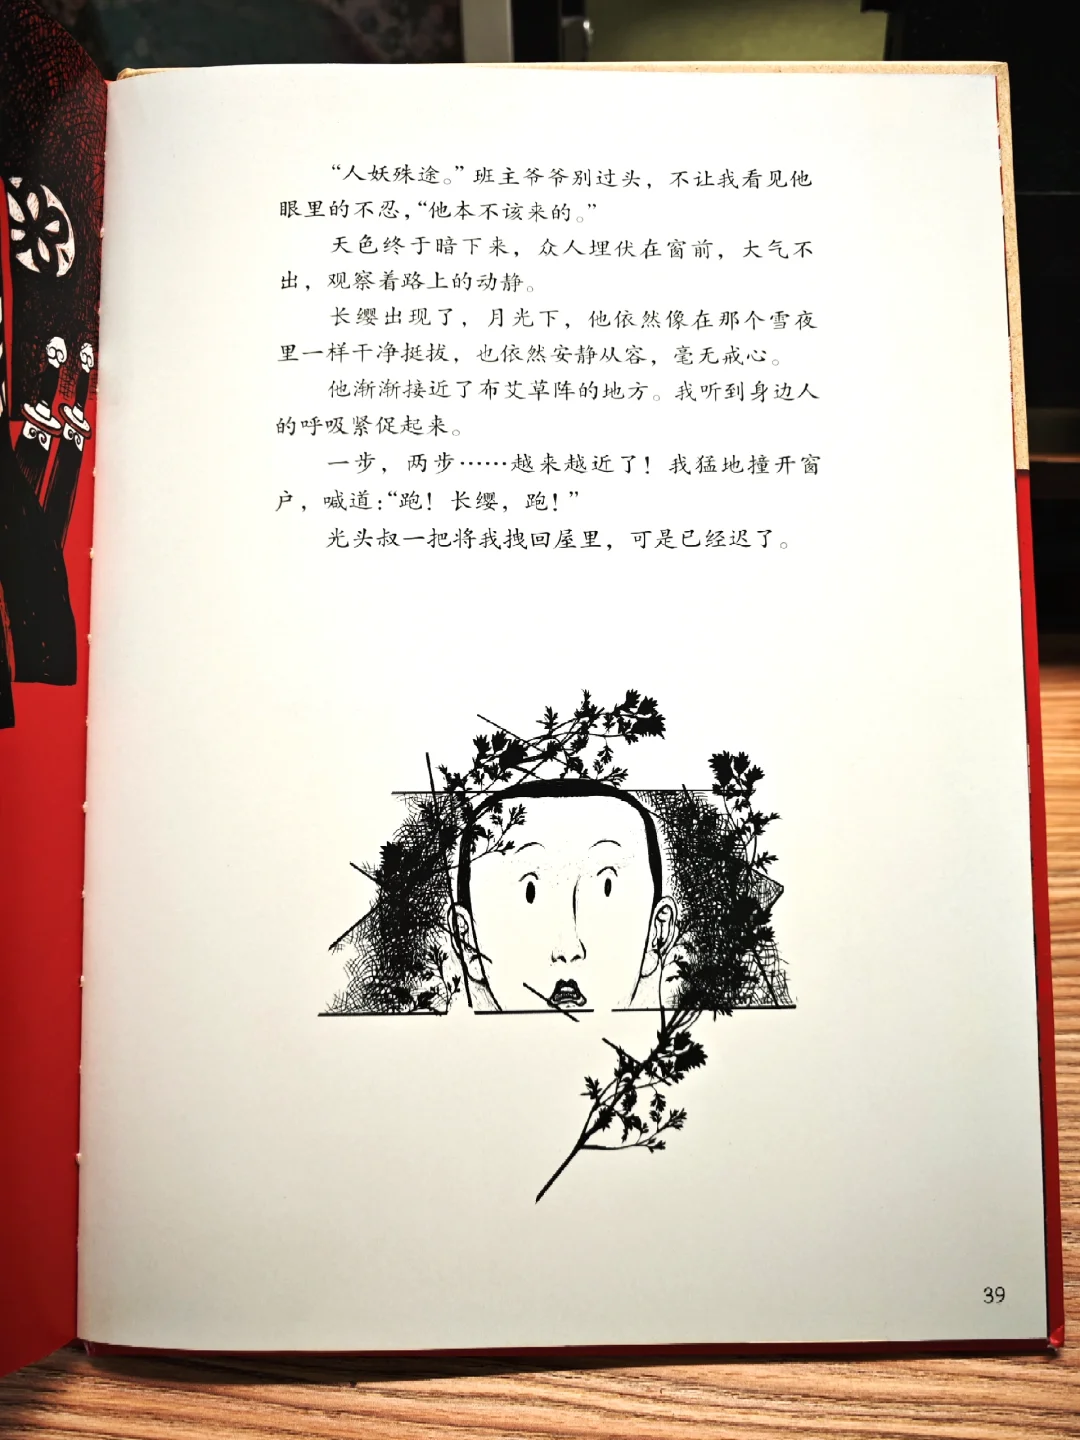 “人妖殊途。”班主爷爷别过头，不让我看见他
眼里的不忍，“他本不该来的。”
天色终于暗下来，众人埋伏在窗前，大气不
出，观察着路上的动静。
长缨出现了，月光下，他依然像在那个雪夜
里一样干净挺拔，也依然安静从容，毫无戒心。
他渐渐接近了布艾草阵的地方。我听到身边人
的呼吸紧促起来。
一步，两步……越来越近了！我猛地撞开窗
户，喊道：“跑！长缨，跑！”
光头叔一把将我拽回屋里，可是已经迟了。
39